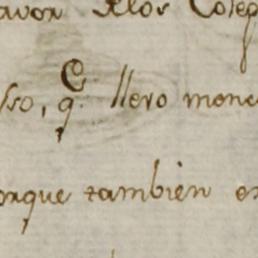 avor Rlos Coleg
sso, q.e llevo mone
orque tambien es